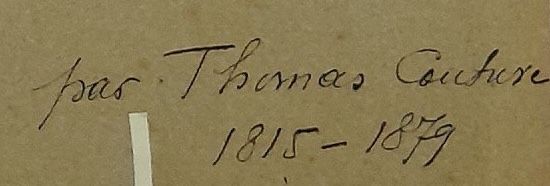 par Thomas Couture
1815 - 1879